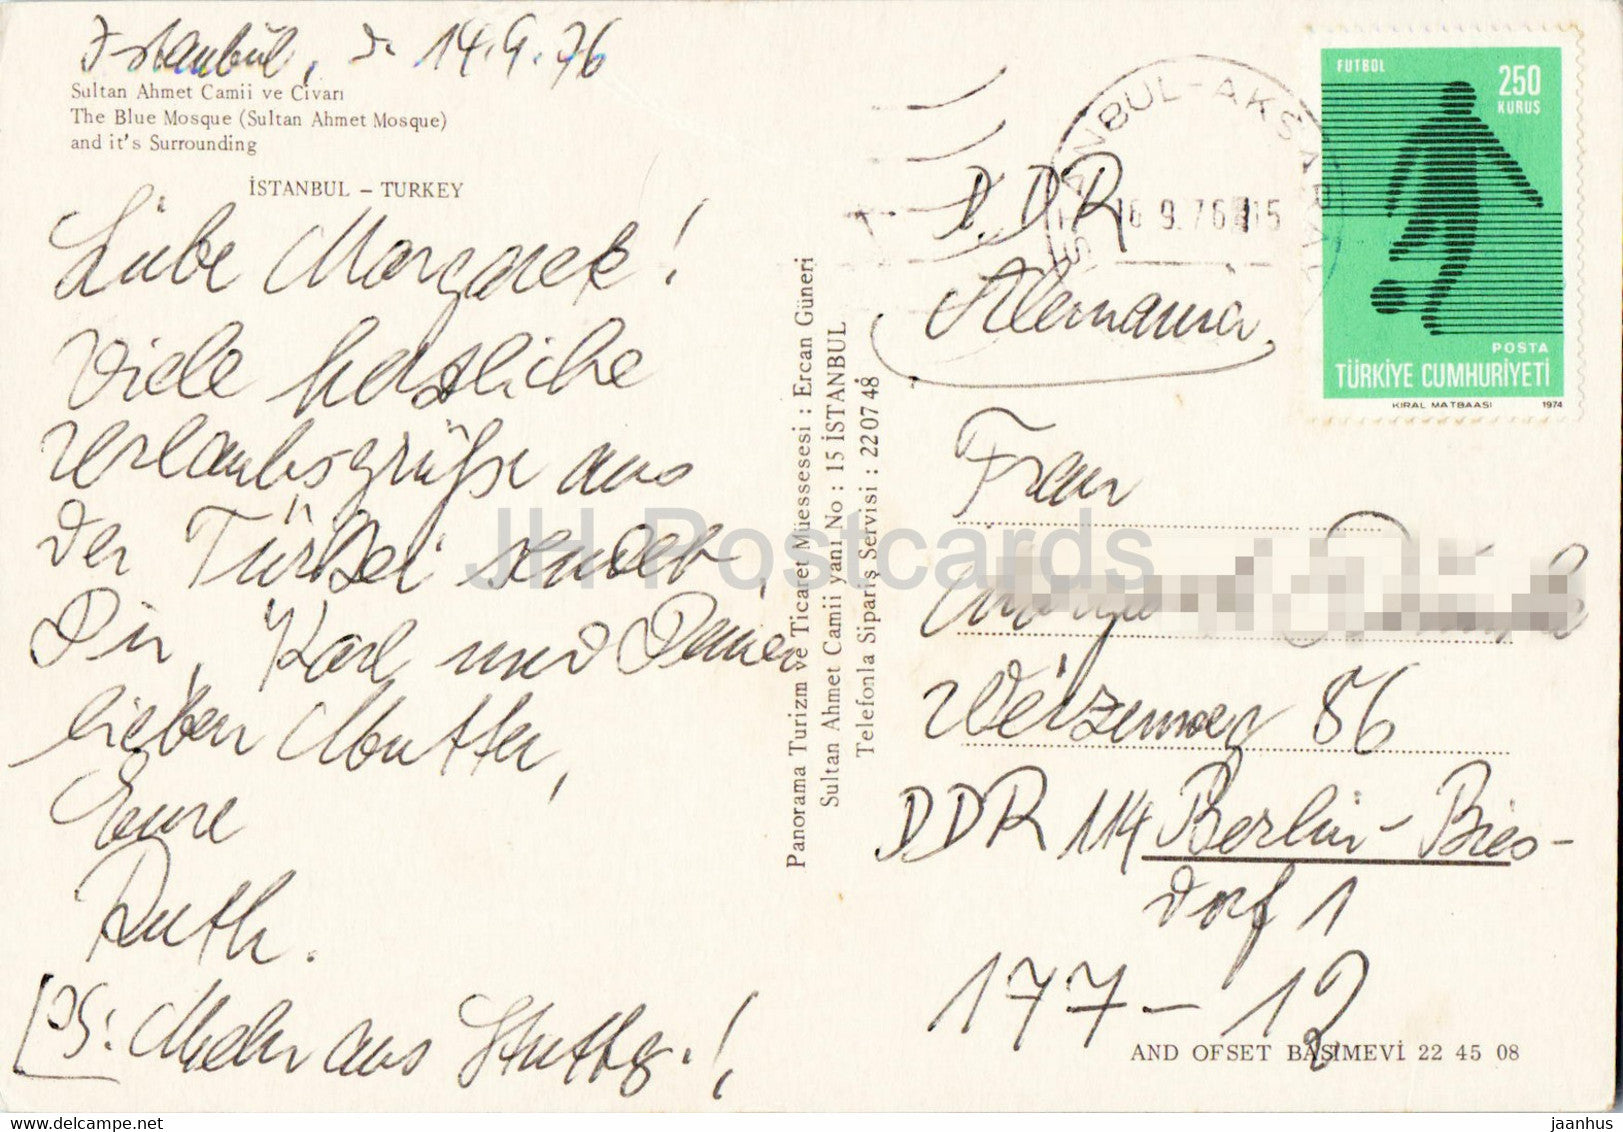 Istanbul, d. 14.9.76
Sultan Ahmet Camii ve Civarı
The Blue Mosque (Sultan Ahmet Mosque)
and it's Surrounding
İSTANBUL – TURKEY
Liebe Margarek!
Viele herzliche
Urlaubsgrüße aus
der Türkei sendet
Dir, Karl und Deiner
lieben Mutter,
Eure
Ruth.
PS: Mehr aus Stuttg.!
Panorama Turizm ve Ticaret Müessesesi : Ercan Güneri
Sultan Ahmet Camii yanı No : 15 İSTANBUL
Telefonla Sipariş Servisi : 22 07 48
İSTANBUL-AKSARAY
16.9.76 15
FUTBOL
250
KURUŞ
POSTA
TÜRKİYE CUMHURİYETİ
KIRAL MATBAASI 1974
DDR
Alemania
Frau
Weizenweg 86
DDR 114 Berlin-Bies-
dorf 1
177-12
AND OFSET BASIMEVİ 22 45 08
JH Postcards
jaanhus